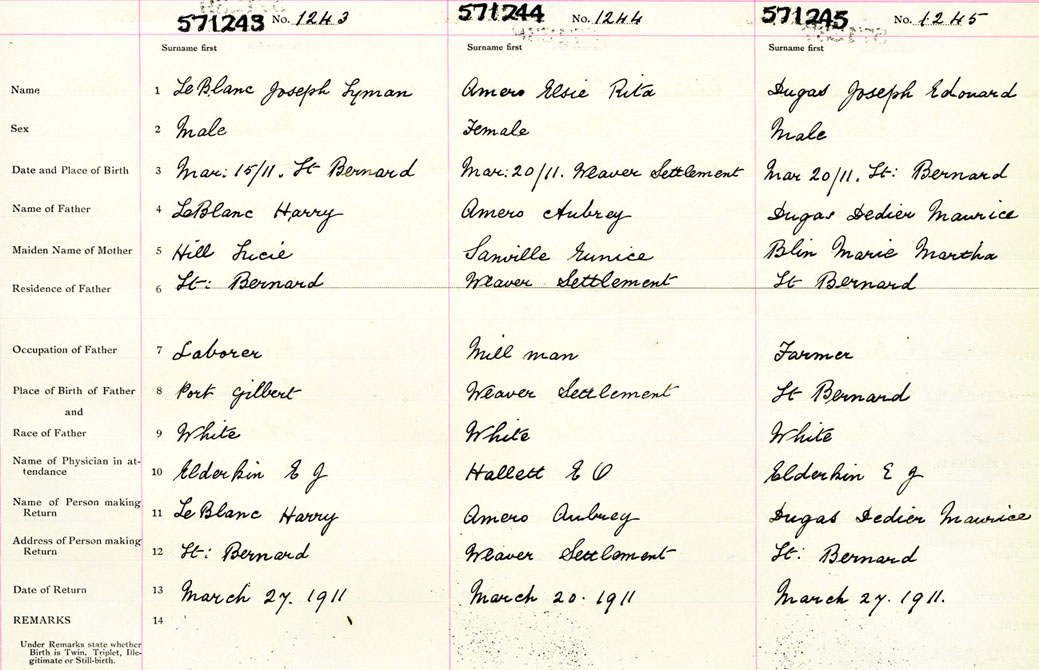 571243 No. 1243 571244 No. 1244 571245 No. 1245
Surname first Surname first Surname first
Name 1 LeBlanc Joseph Lyman Amero Elsie Rita Dugas Joseph Edouard
Sex 2 Male Female Male
Date and Place of Birth 3 Mar: 15/11. St Bernard Mar: 20/11. Weaver Settlement Mar 20/11. St: Bernard
Name of Father 4 LeBlanc Harry Amero Aubrey Dugas Dedier Maurice
Maiden Name of Mother 5 Hill Lucie Sanville Eunice Blin Marie Martha
Residence of Father 6 St: Bernard Weaver Settlement St Bernard
Occupation of Father 7 Laborer Mill man Farmer
Place of Birth of Father 8 Port Gilbert Weaver Settlement St Bernard
and
Race of Father 9 White White White
Name of Physician in at-
tendance 10 Elderkin E J Hallett E O Elderkin E J
Name of Person making
Return 11 LeBlanc Harry Amero Aubrey Dugas Dedier Maurice
Address of Person making
Return 12 St: Bernard Weaver Settlement St: Bernard
Date of Return 13 March 27. 1911 March 20. 1911 March 27. 1911.
REMARKS 14
Under Remarks state whether
Birth is Twin, Triplet, Ille-
gitimate or Still-birth.